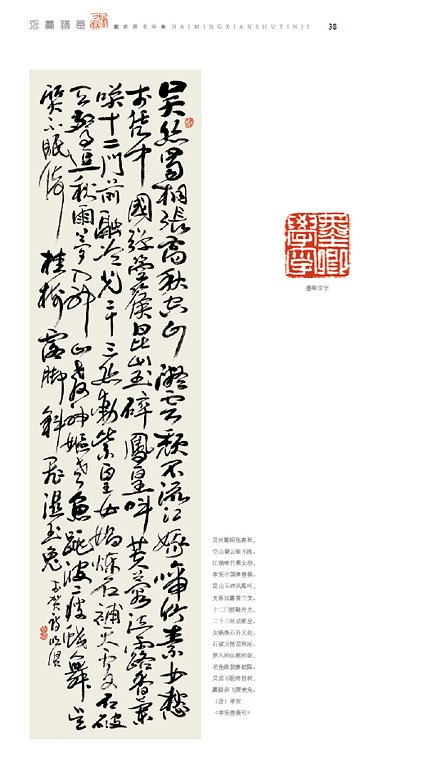 DAIMINGXIANSHUYINJI
38
吳絲蜀桐張高秋空山凝雲頹不流江娥啼竹素女愁
李憑中國彈箜篌昆山玉碎鳳皇叫芙蓉泣露香蘭
笑十二門前融冷光二十三絲動紫皇女媧煉石補天處石破
天驚逗秋雨夢入神山教神嫗老魚跳波瘦蛟舞吳
質不眠倚桂樹露腳斜飛濕
墨卿學字
墨卿学字
吴丝蜀桐张高秋，
空山凝云颓不流。
江娥啼竹素女愁，
李凭中国弹箜篌。
昆山玉碎凤凰叫，
芙蓉泣露香兰笑。
十二门前融冷光，
二十三丝动紫皇。
女娲炼石补天处，
石破天惊逗秋雨。
梦入神山教神妪，
老鱼跳波瘦蛟舞。
吴质不眠倚桂树，
露脚斜飞湿寒兔。
（唐）李贺
《李凭箜篌引》